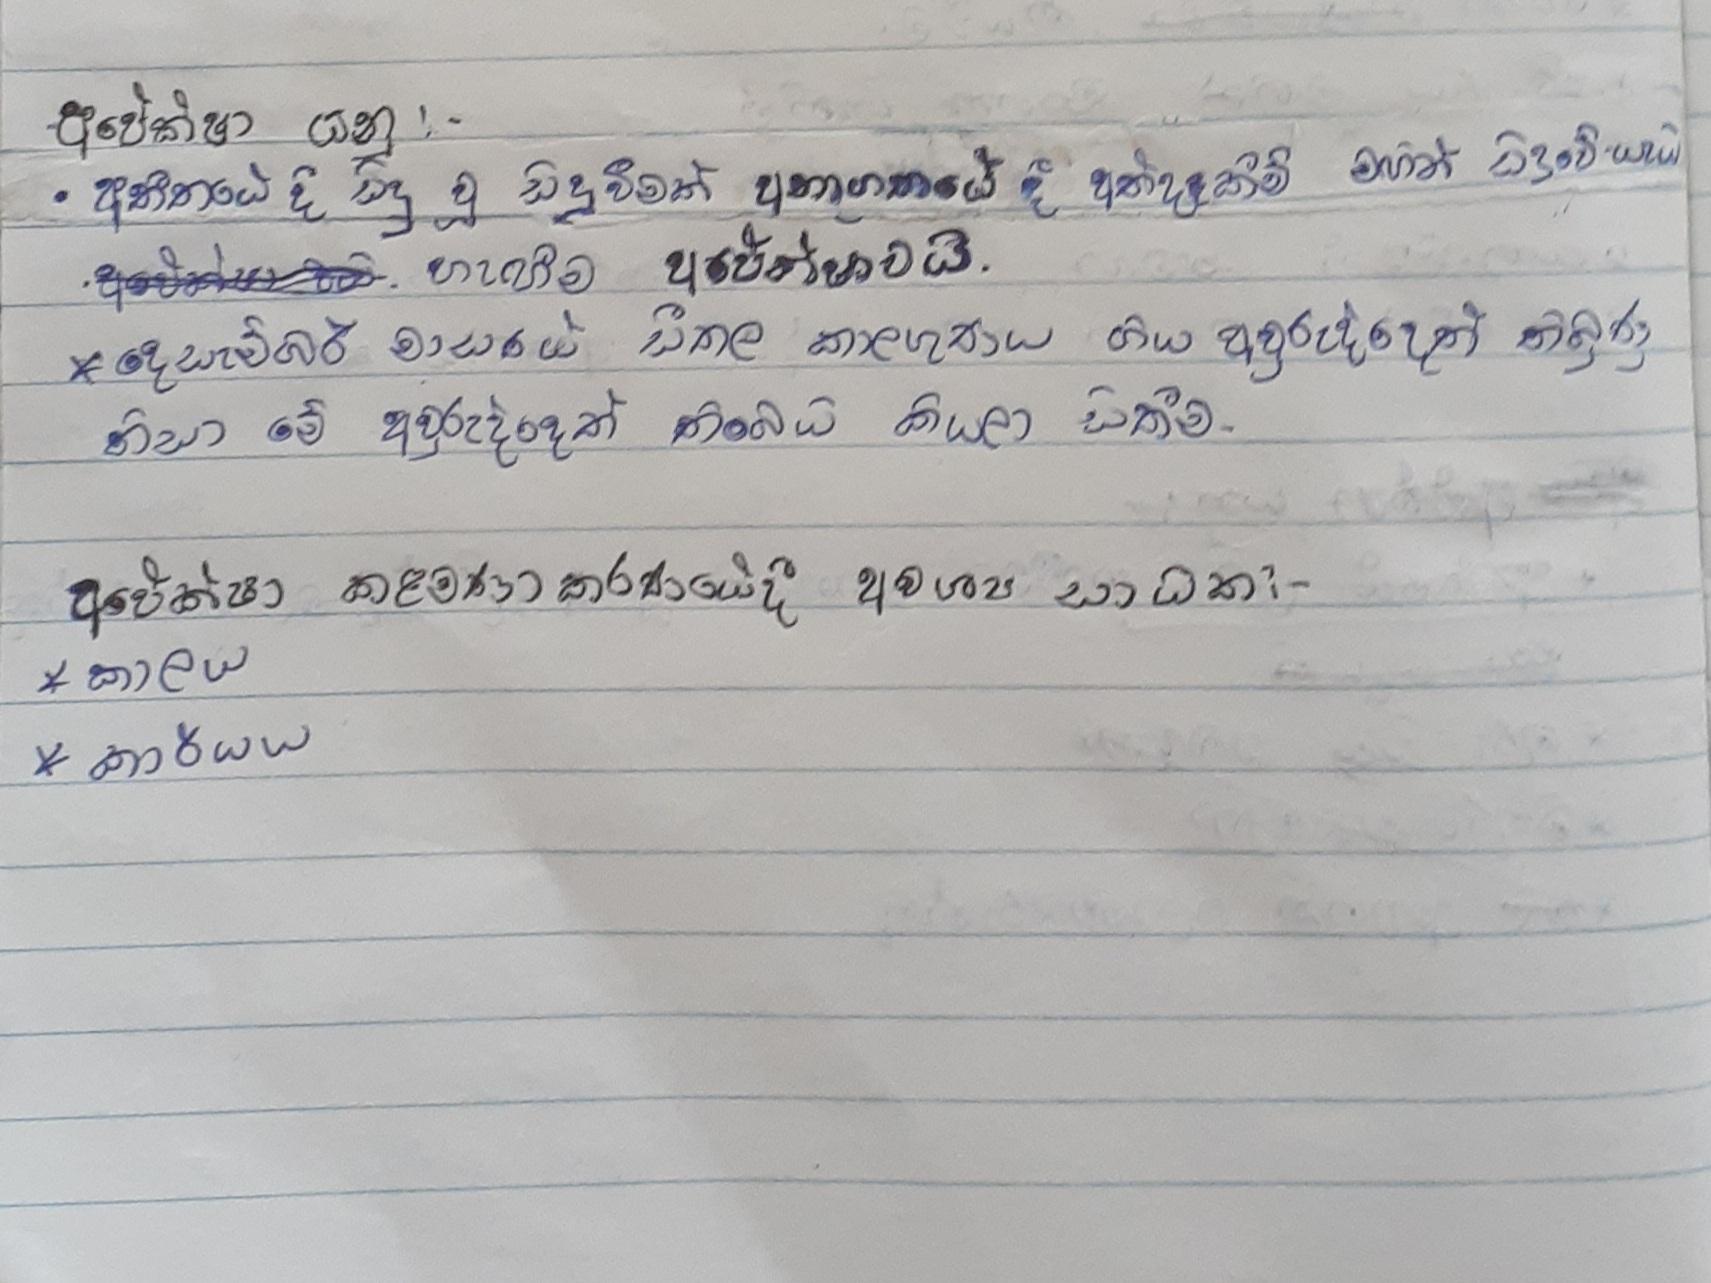 අපේක්ෂා යනු :-
• අතීතයේ දී සිදු වූ සිදුවීමක් අනාගතයේ දී අත්දැකීම් මඟින් සිදුවේ යැයි
හැඟීම අපේක්ෂාවයි.
* දෙසැම්බර් මාසයේ සීතල කාලගුණය ගිය අවුරුද්දෙත් තිබුණු
නිසා මේ අවුරුද්දෙත් තිබෙයි කියලා සිතීම.
අපේක්ෂා කළමණාකරණයේදී අවශ්‍ය සාධක :-
* කාලය
* කාර්යය